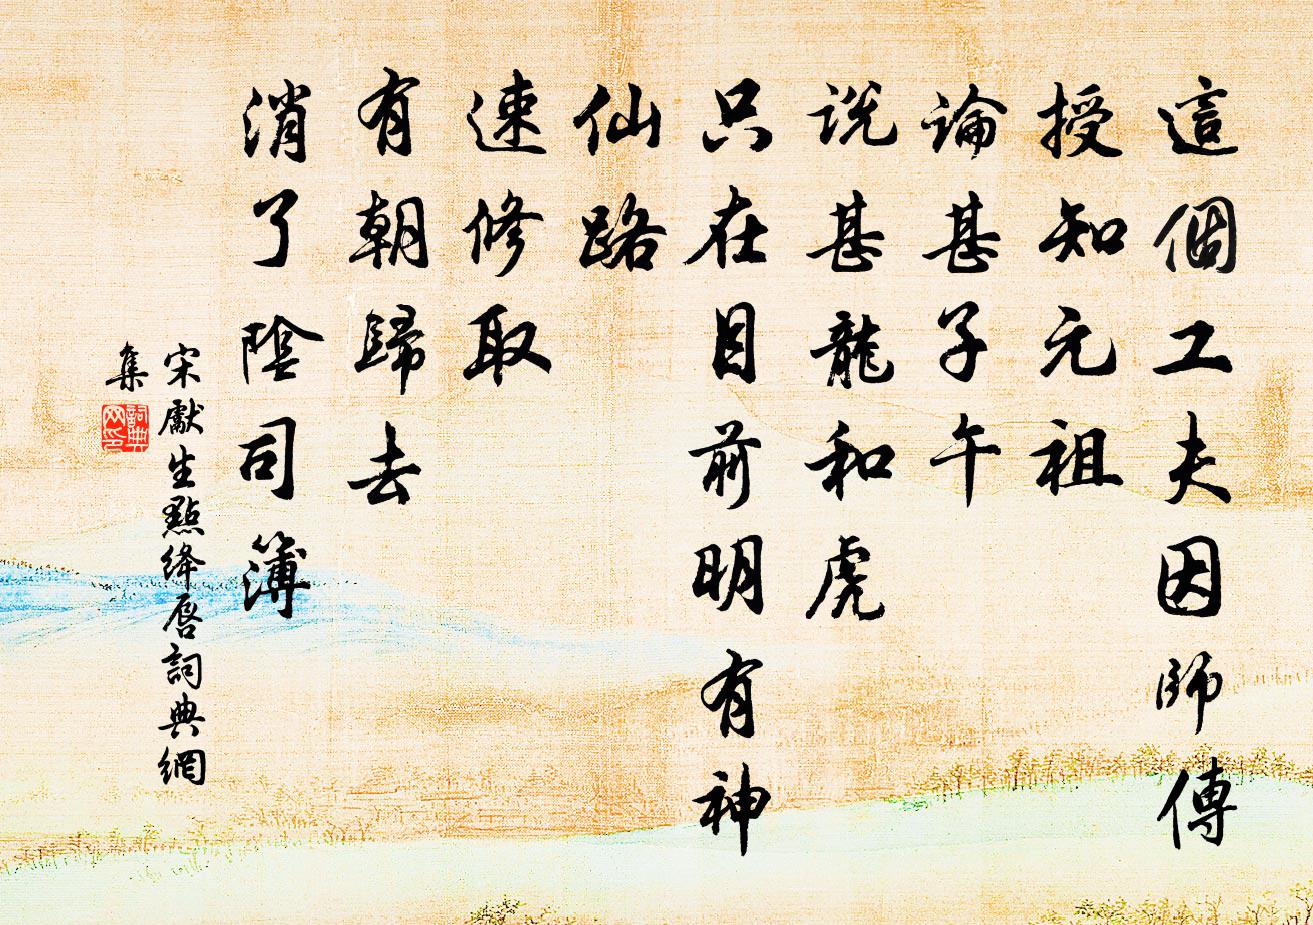 這個工夫因師傳
授知元祖
論甚子午
說甚龍和虎
只在目前明有神
仙路
速修取
有朝歸去
消了陰司簿
宋獻生點絳唇詞典網
集
詞典
网印